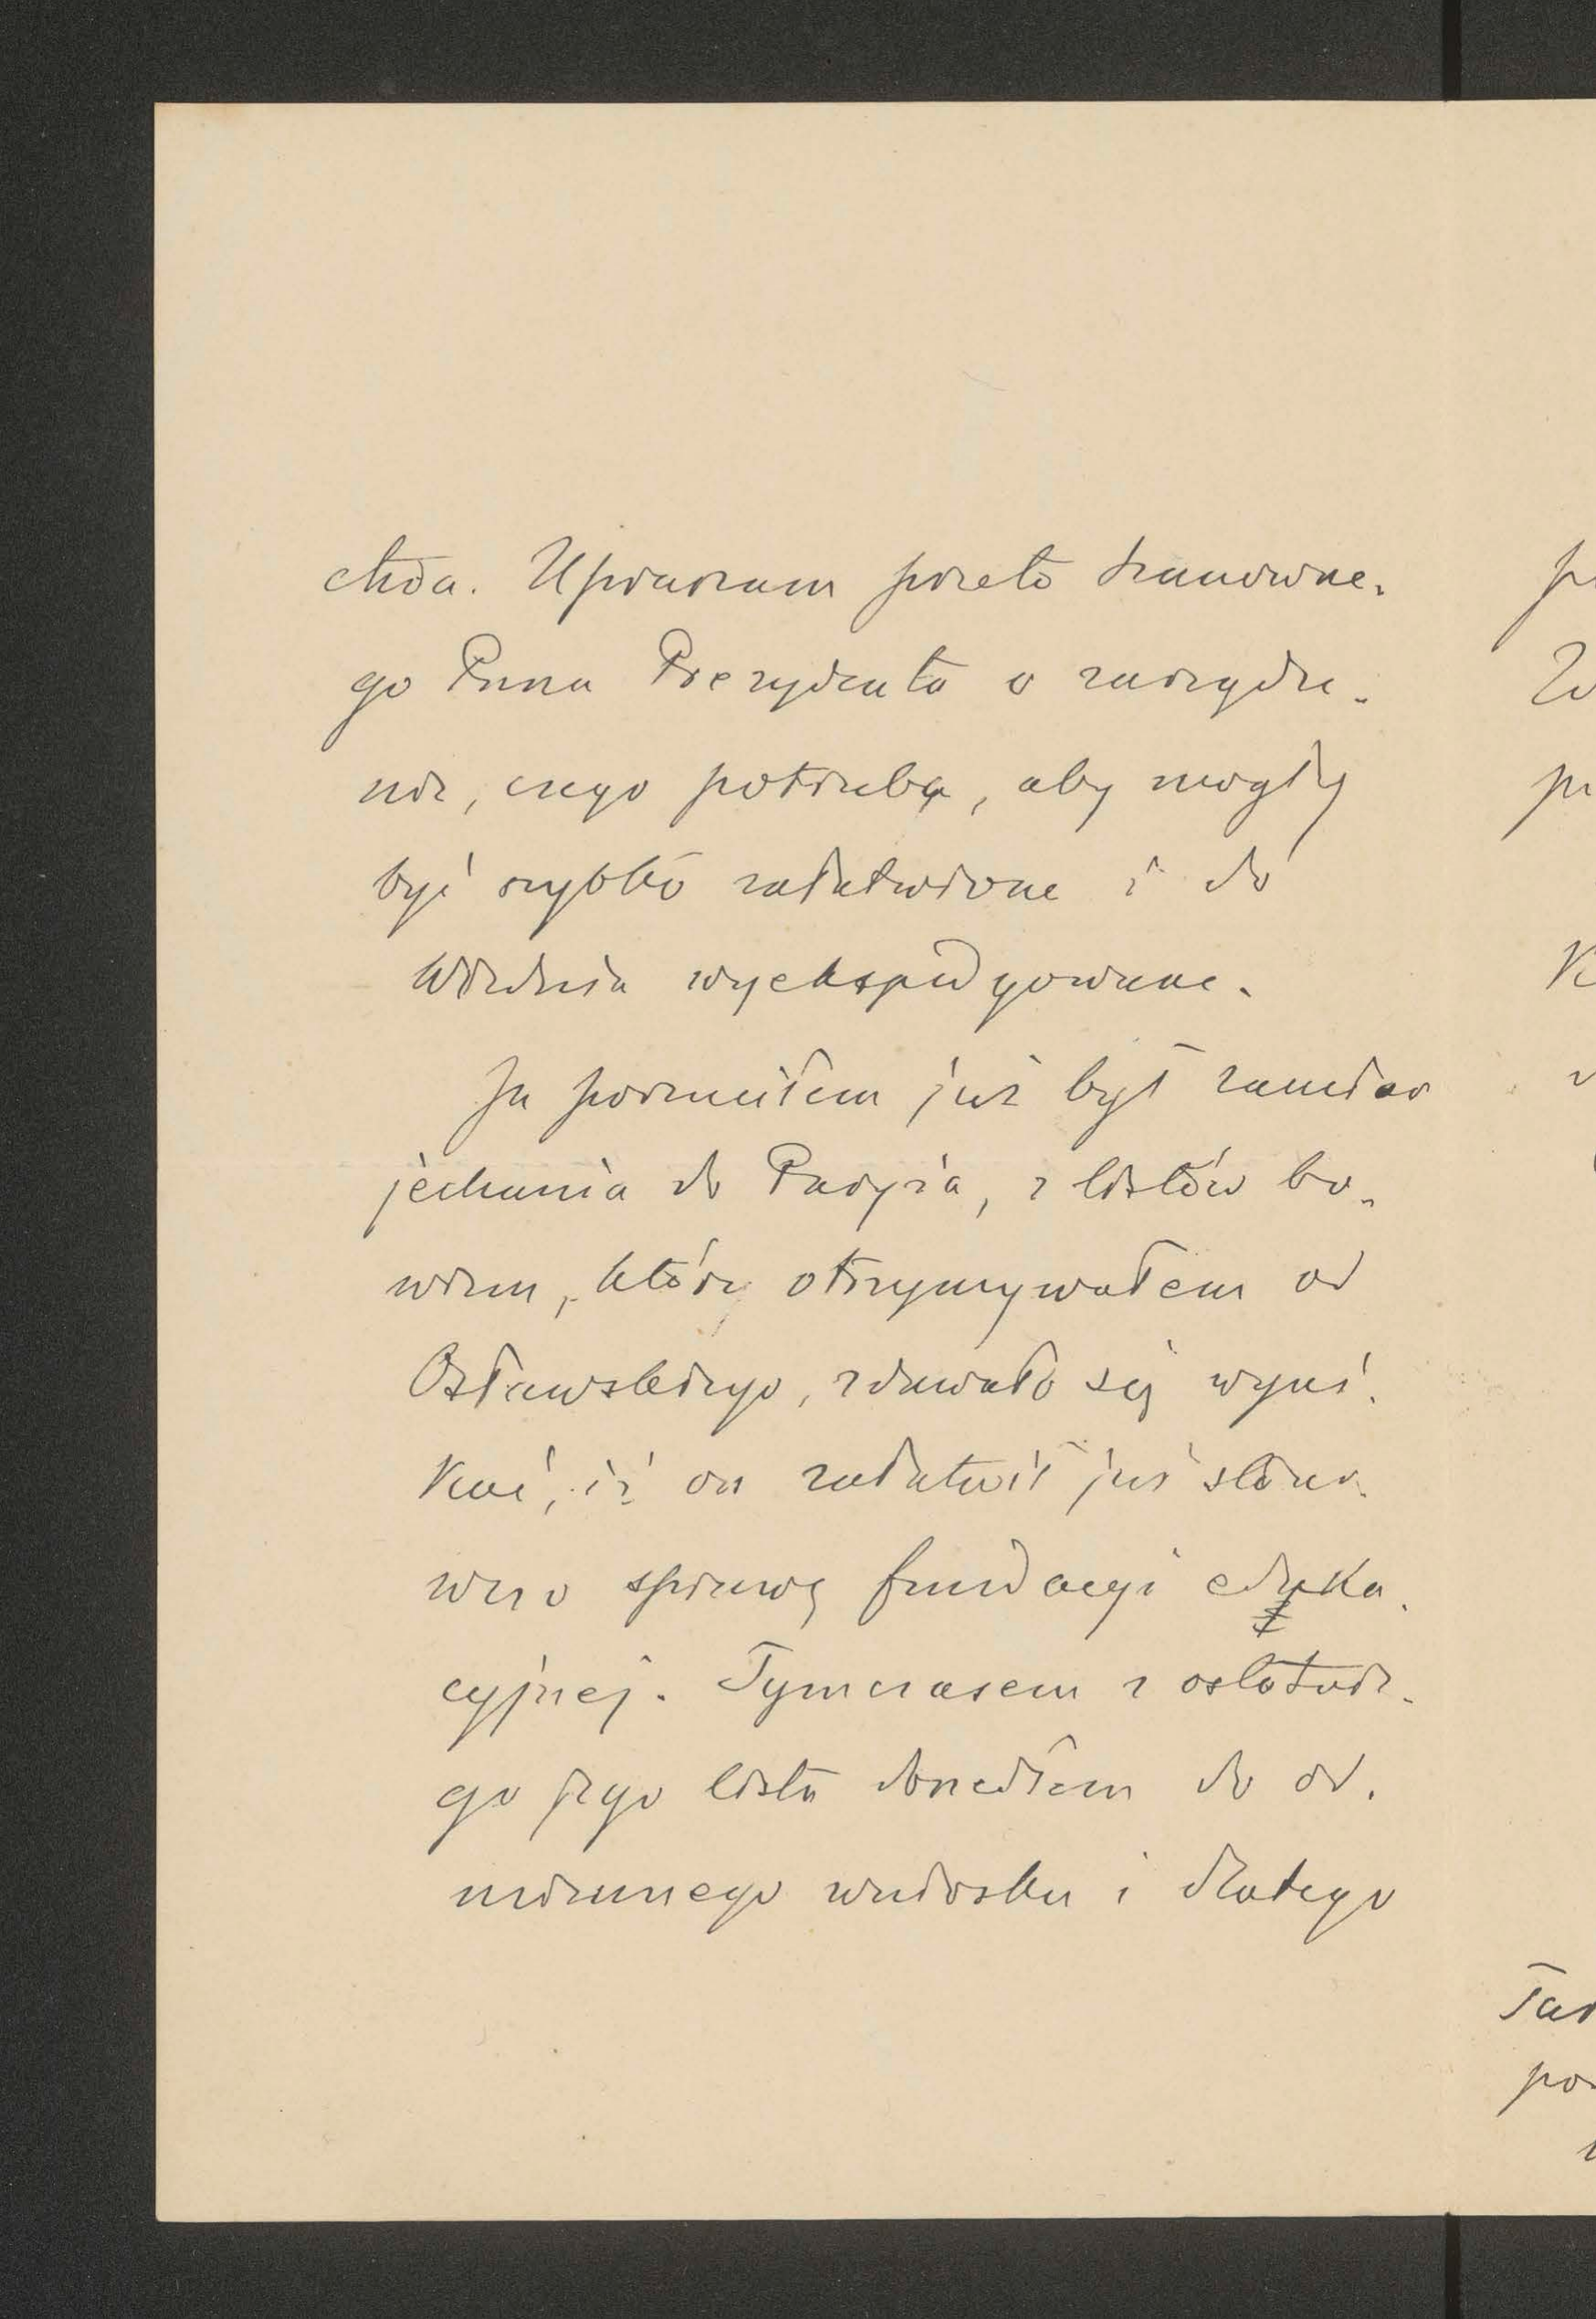 chodu. Upraszam przeto Szanowne-
go Pana Prezydenta o zarządze-
nie, czego potrzeba, aby mogły
być szybko załatwione i do
Wiednia wyekspedyowane.
Ja porzuciłem już był zamiar
jechania do Paryża, z listów bo-
wiem, które otrzymywałem od
Osławskiego, zdawało się wyni-
kać, iż on załatwił już stano-
wczo sprawę fundacyi eduka-
cyjnej. Tymczasem z ostatnie-
go jego listu doszedłem do od-
miennego wniosku i dlatego